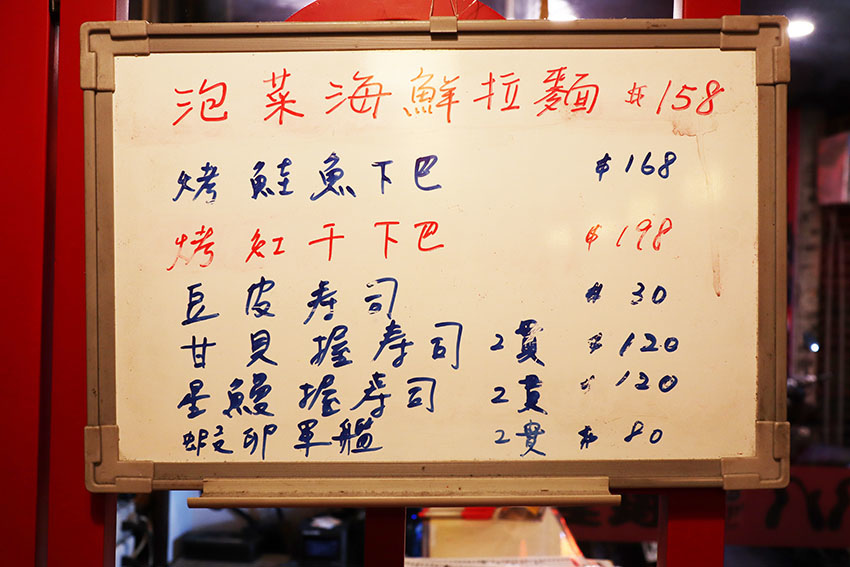 泡菜海鮮拉麵 $158
烤鮭魚下巴 $168
烤紅干下巴 $198
豆皮寿司 $30
甘貝握寿司 2貫 $120
星鰻握寿司 2貫 $120
蝦卵軍艦 2貫 $80